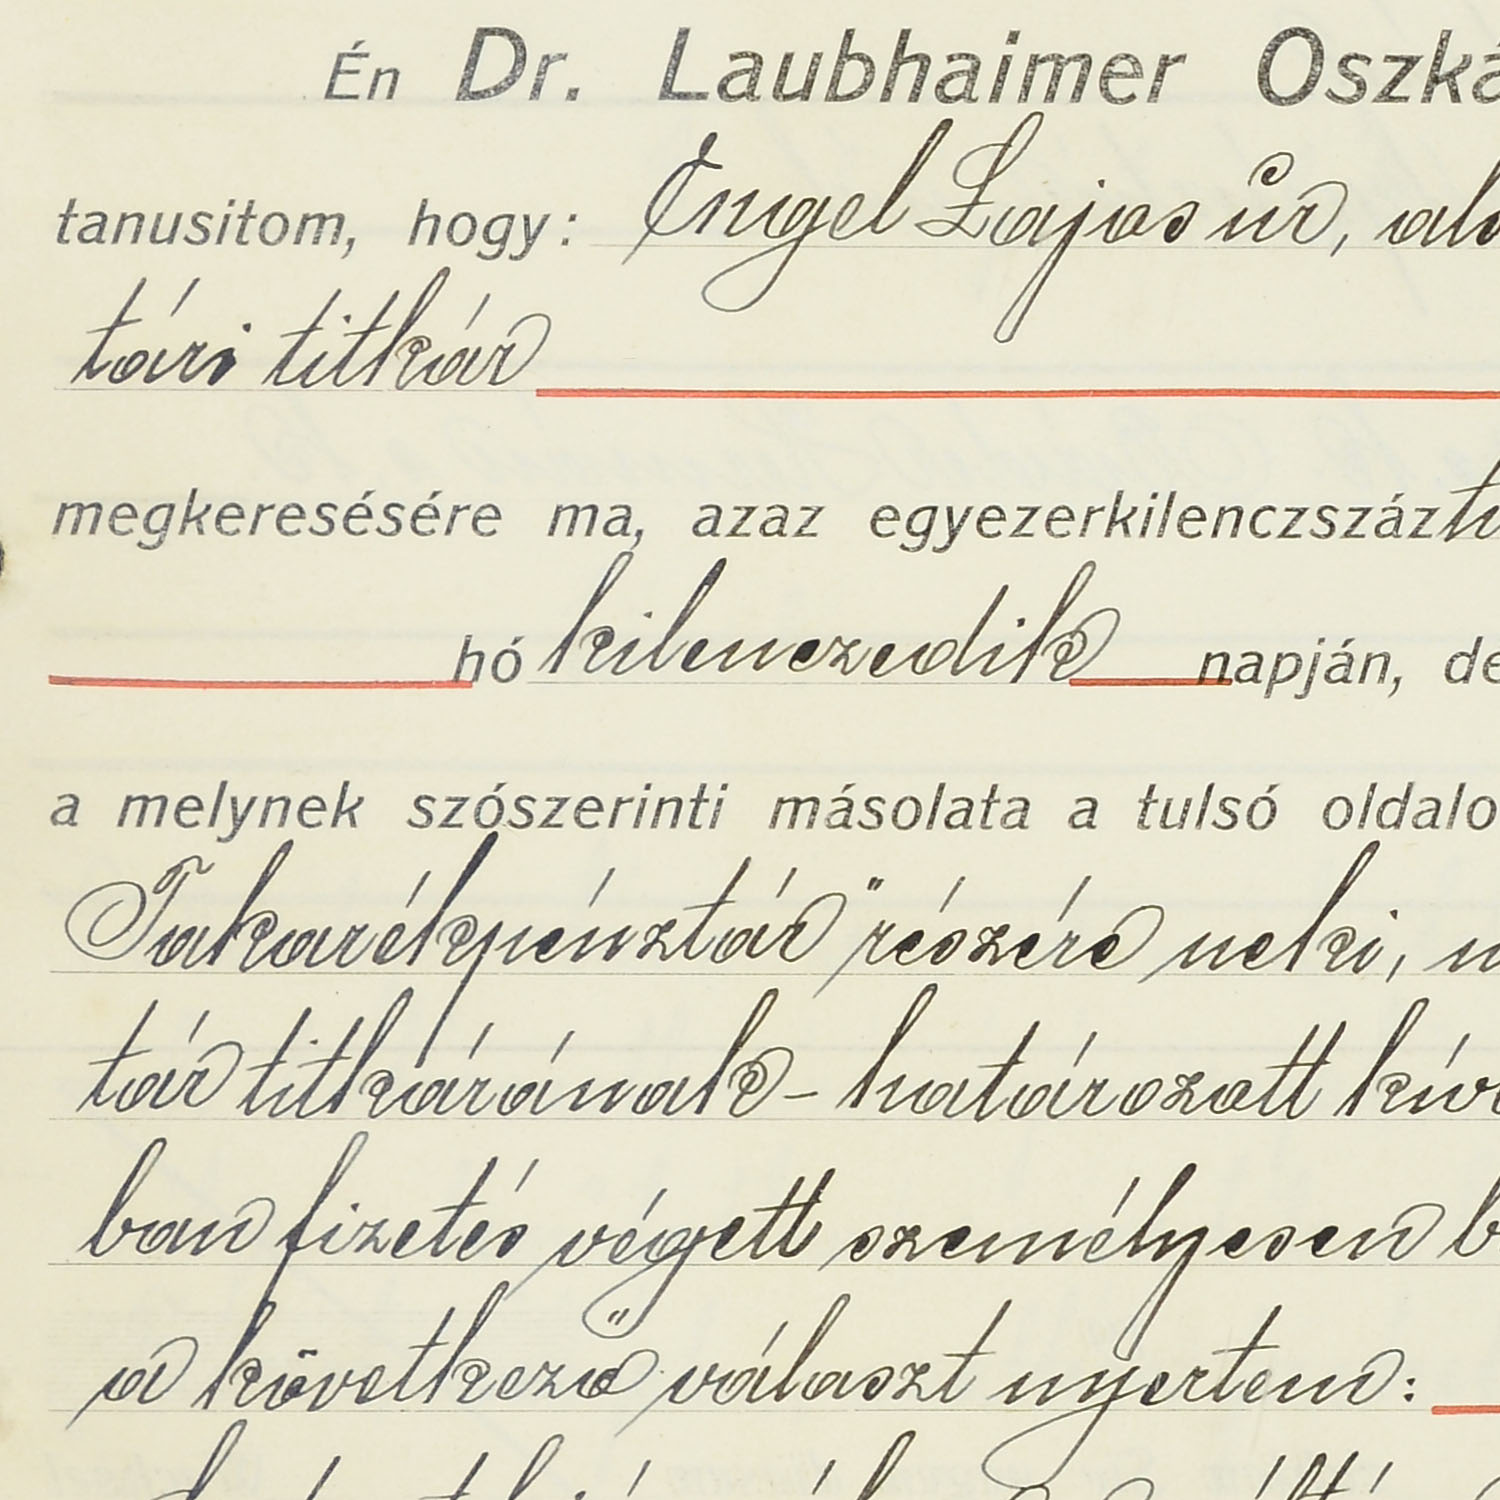 Én Dr. Laubhaimer Oszká
tanusitom, hogy: Engel Lajos úr, als
tári titkár
megkeresésére ma, azaz egyezerkilenczszázti
hó kilenczedik napján, de
a melynek szószerinti másolata a tulsó oldalo
Takarékpénztár" részére neki, m
tár titkárának - határozott kívá
ban fizetés végett személyesen b
a következő választ nyertem: